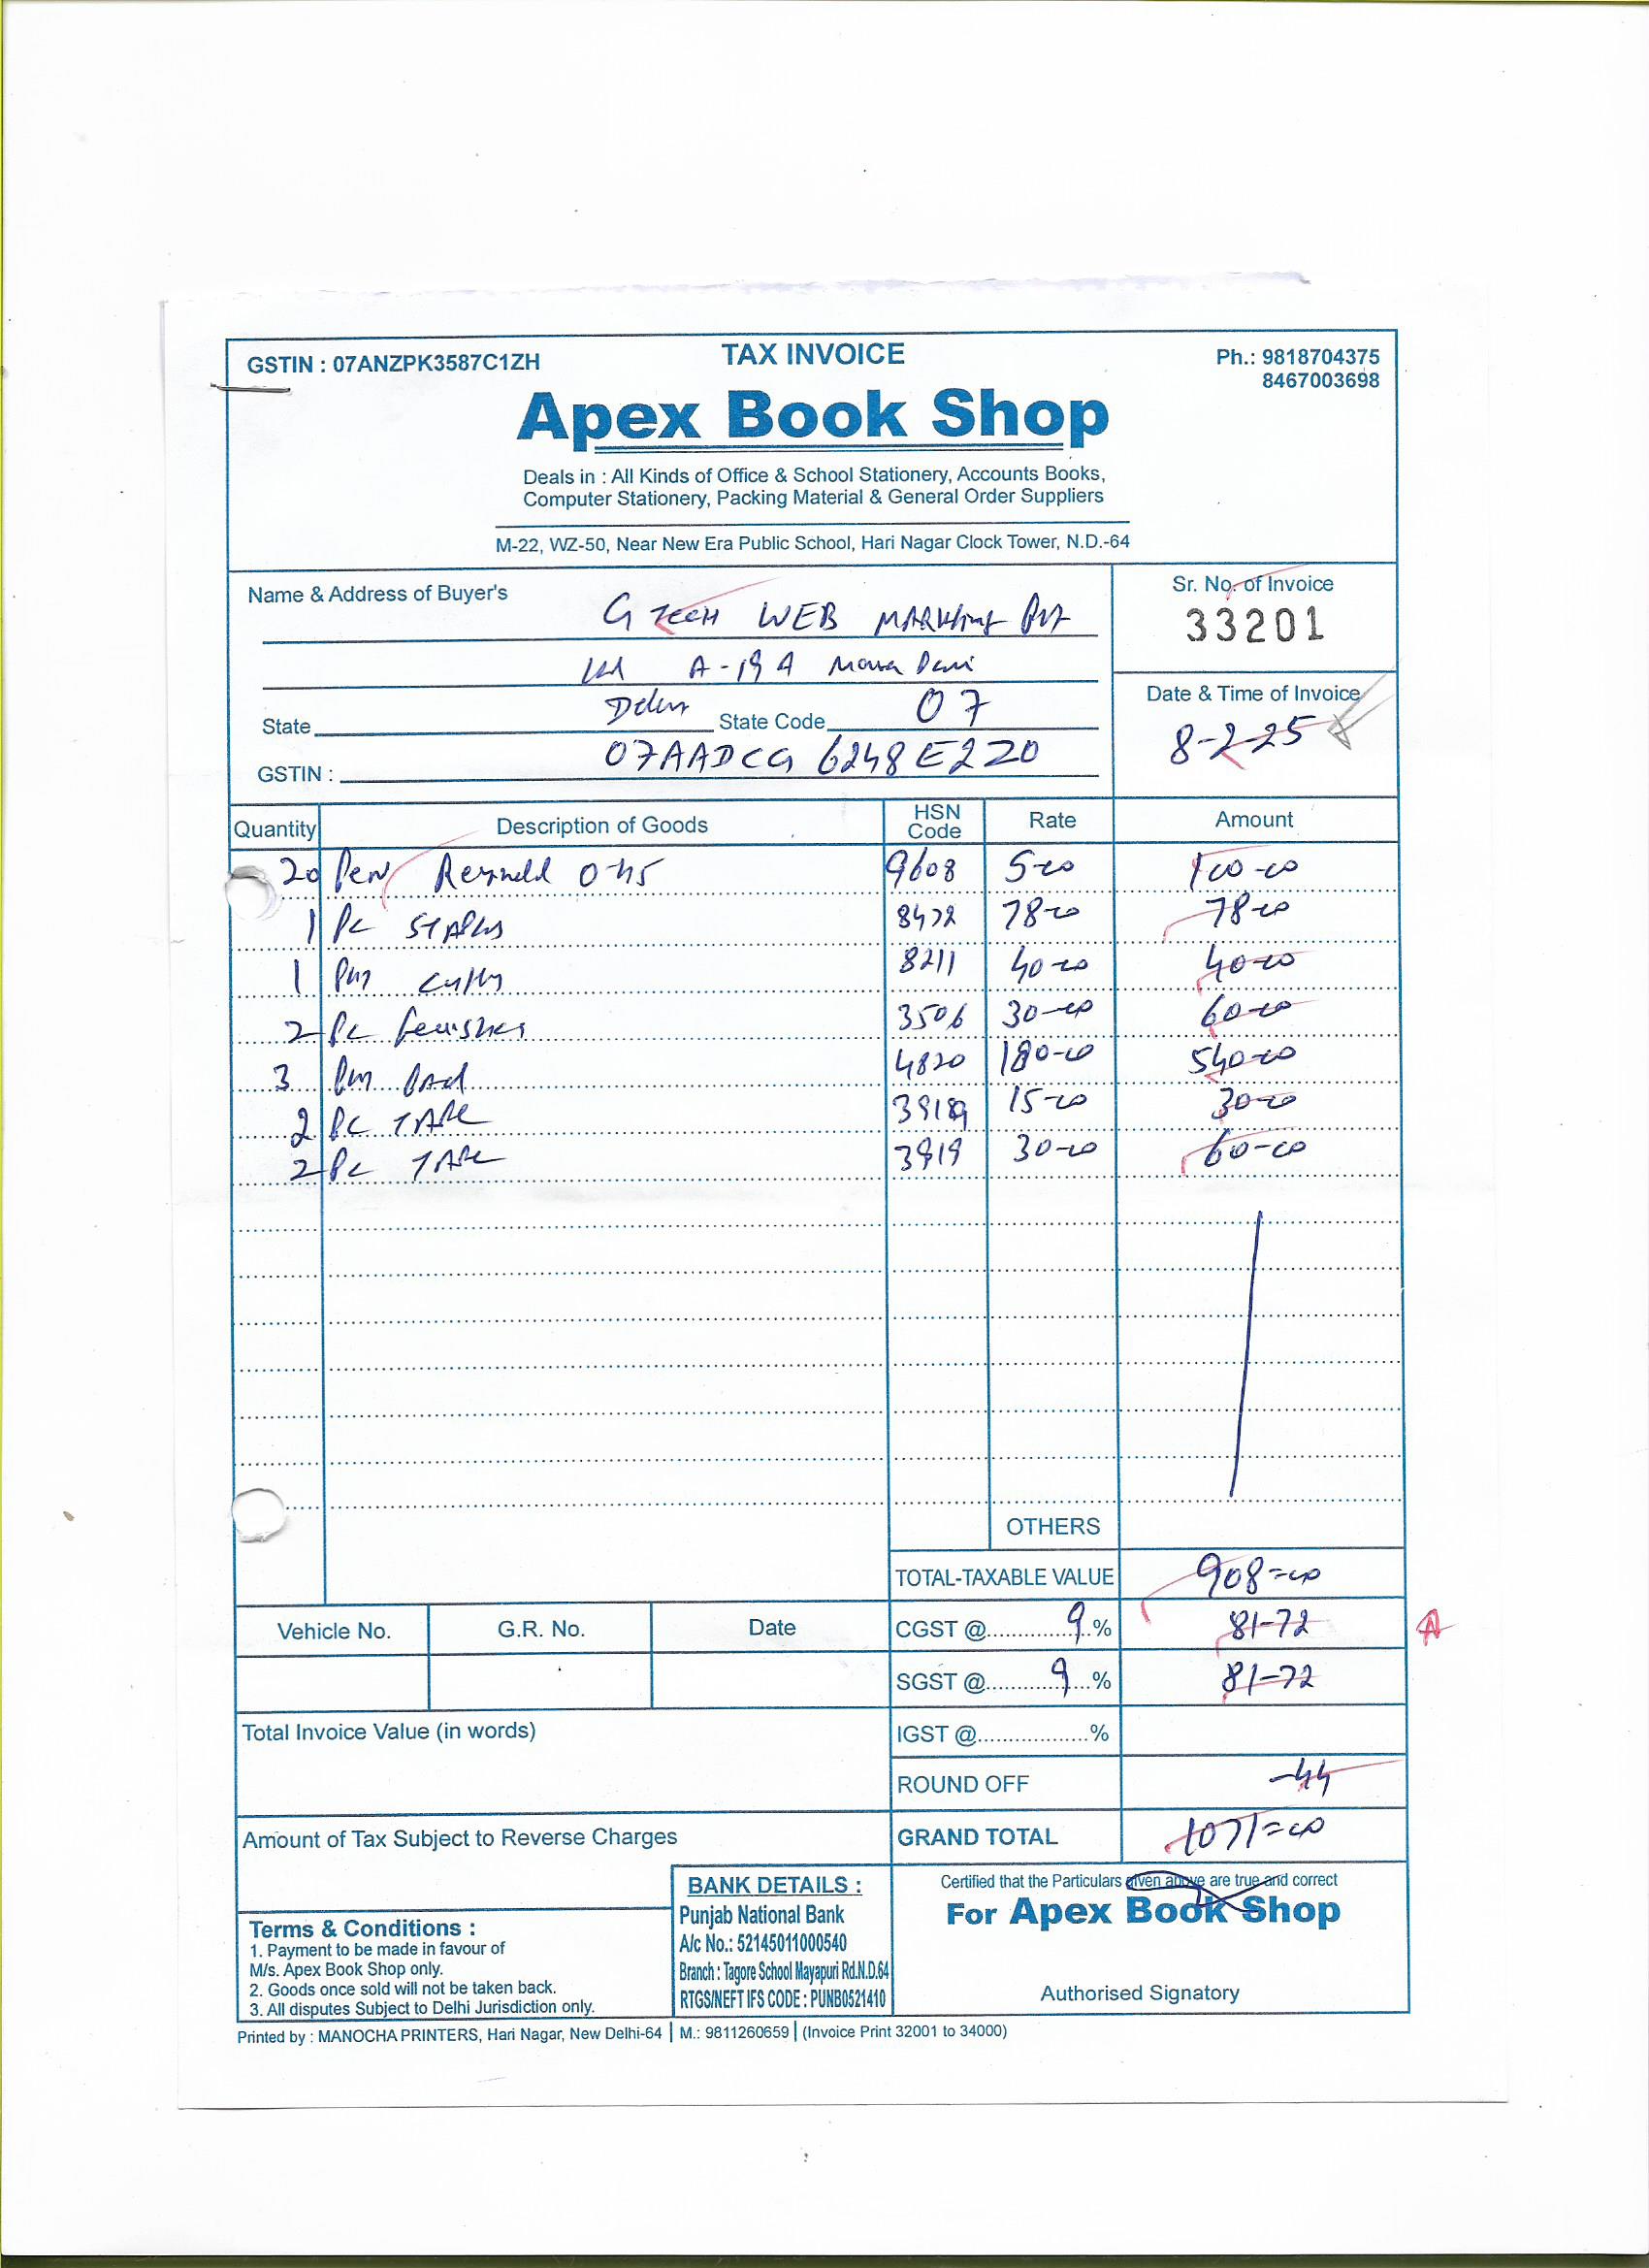 GSTIN : 07ANZPK3587C1ZH
TAX INVOICE
Ph.: 9818704375
8467003698
Apex Book Shop
Deals in : All Kinds of Office & School Stationery, Accounts Books,
Computer Stationery, Packing Material & General Order Suppliers
M-22, WZ-50, Near New Era Public School, Hari Nagar Clock Tower, N.D.-64
Name & Address of Buyer's G TECH WEB MARKting Pvt
Ltd A-19 A
State Delhi State Code 07
GSTIN : 07AADCG 6248E2Z0
Sr. No. of Invoice
33201
Date & Time of Invoice
8-2-25
Quantity Description of Goods HSN Code Rate Amount
20 Pen 045 9608 5-00 100-00
1 Pc 8472 78-00 78-00
1 8211 40-00 40-00
2 Pc 3506 30-00 60-00
3 Pad 4820 180-00 540-00
2 Pc TAPE 15-00 30-00
2 Pc TAPE 3919 30-00 60-00
OTHERS
TOTAL-TAXABLE VALUE 908=00
Vehicle No. G.R. No. Date CGST @ 9 % 81-72
SGST @ 9 % 81-72
Total Invoice Value (in words) IGST @ %
ROUND OFF -44
Amount of Tax Subject to Reverse Charges GRAND TOTAL 1071=00
Terms & Conditions :
1. Payment to be made in favour of
M/s. Apex Book Shop only.
2. Goods once sold will not be taken back.
3. All disputes Subject to Delhi Jurisdiction only.
BANK DETAILS :
Punjab National Bank
A/c No.: 52145011000540
Branch : Tagore School Mayapuri Rd.N.D.64
RTGS/NEFT IFS CODE : PUNB0521410
Certified that the Particulars given above are true and correct
For Apex Book Shop
Authorised Signatory
Printed by : MANOCHA PRINTERS, Hari Nagar, New Delhi-64 | M.: 9811260659 | (Invoice Print 32001 to 34000)